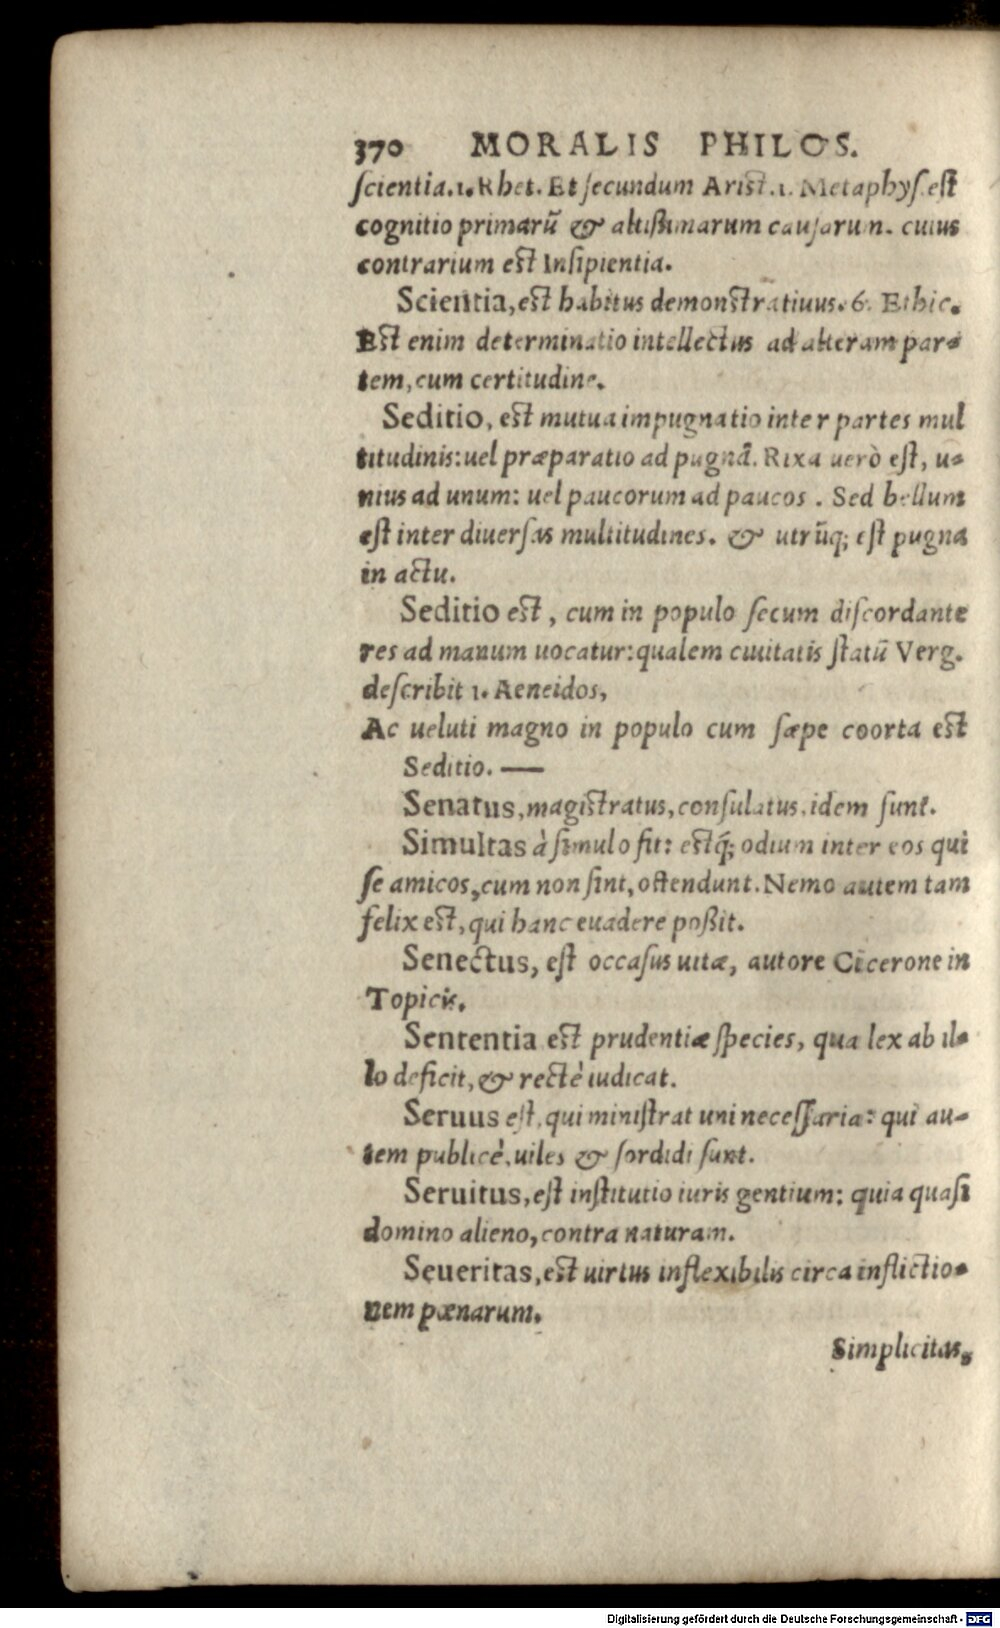 370 MORALIS PHILOS.
ſcientia.1.Rhet. Et ſecundum Ariſt.1. Metaphyſ.eſt
cognitio primarũ & altiſsimarum cauſarum. cuius
contrarium eſt Inſipientia.
Scientia, eſt habitus demonſtratiuus. 6. Ethic.
Eſt enim determinatio intellectus ad alteram par-
tem, cum certitudine.
Seditio, eſt mutua impugnatio inter partes mul
titudinis: uel præparatio ad pugnã. Rixa uerò eſt, u-
nius ad unum: uel paucorum ad paucos . Sed bellum
eſt inter diuerſas multitudines. & utrũq; eſt pugna
in actu.
Seditio eſt, cum in populo ſecum diſcordante
res ad manum uocatur: qualem ciuitatis ſtatũ Verg.
deſcribit 1. Aeneidos,
Ac ueluti magno in populo cum ſæpe coorta eſt
Seditio. —
Senatus, magiſtratus, conſulatus, idem ſunt.
Simultas à ſimulo fit: eſtq́; odium inter eos qui
ſe amicos, cum non ſint, oſtendunt. Nemo autem tam
felix eſt, qui hanc euadere poßit.
Senectus, eſt occaſus uitæ, autore Cicerone in
Topicis.
Sententia eſt prudentiæ ſpecies, qua lex ab il-
lo deficit, & rectè iudicat.
Seruus eſt, qui miniſtrat uni neceſſaria: qui au-
tem publicè, uiles & ſordidi ſunt.
Seruitus, eſt inſtitutio iuris gentium: quia quaſi
domino alieno, contra naturam.
Seueritas, eſt uirtus inflexibilis circa inflictio-
nem pœnarum.
Simplicitas,
Digitalisierung gefördert durch die Deutsche Forschungsgemeinschaft - DFG